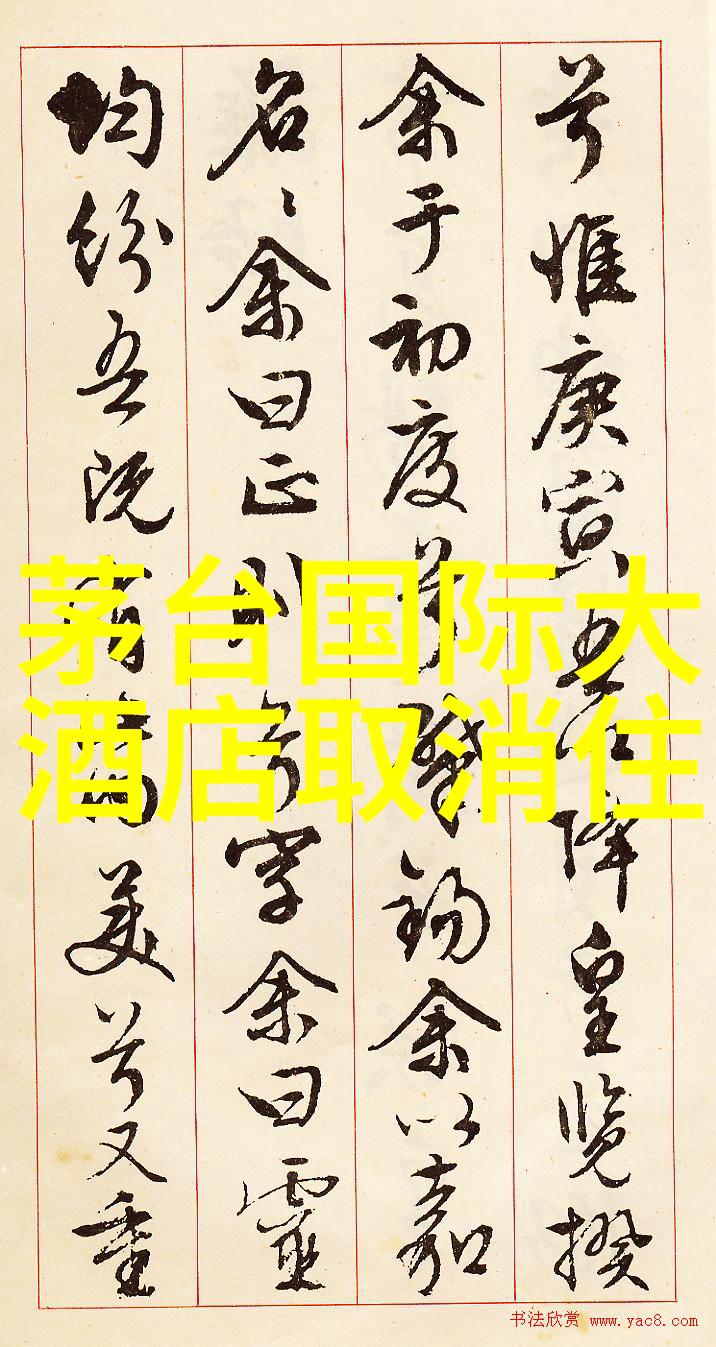 兮惟庚寅吾以降皇覽揆
余于初度兮肇錫余以嘉
名〻余曰正則兮字余曰靈
均紛吾既有此內美兮又重
茅台国际大
酒店取消住
书法欣赏 www.yac8.com